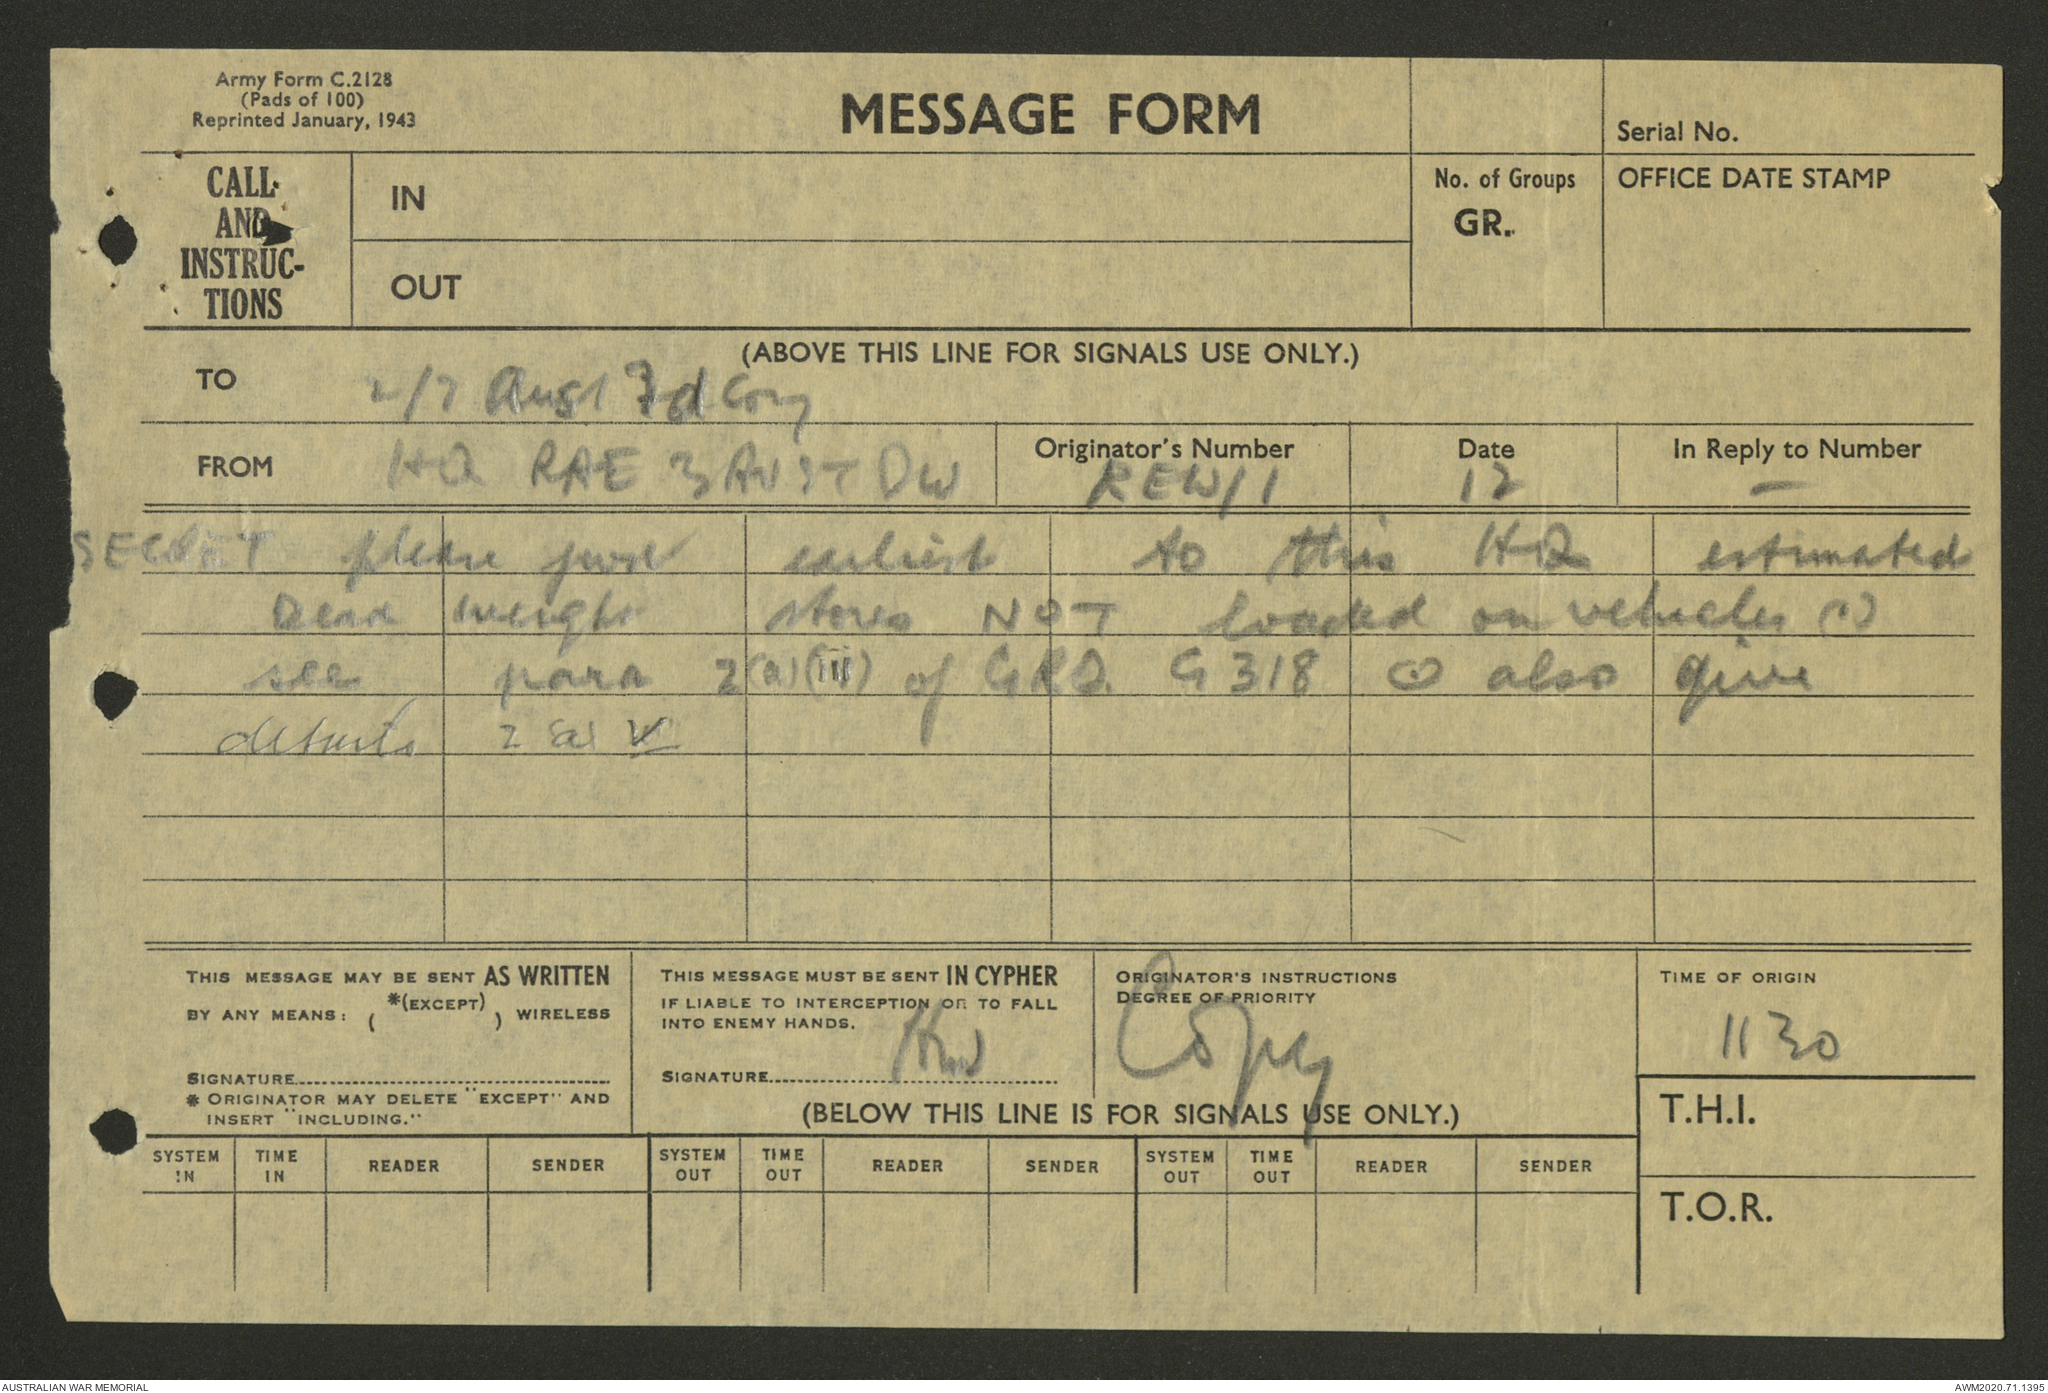 Army Form C.2128
(Pads of 100)
Reprinted January, 1943
MESSAGE FORM
Serial No.
CALL
AND
INSTRUC-
TIONS
IN
OUT
No. of Groups
GR.
OFFICE DATE STAMP
(ABOVE THIS LINE FOR SIGNALS USE ONLY.)
TO 2/7 Aust Fd Coy
FROM HQ RAE 3 AUST DIV
Originator's Number REW/1
Date 12
In Reply to Number —
SECRET please earliest to this HQ estimated
Dead weight stores NOT loaded on vehicles (.)
see para 2(a)(iii) of G 318 ⊙ also give
details 2 (a) V
THIS MESSAGE MAY BE SENT AS WRITTEN
BY ANY MEANS: ( *(EXCEPT) ) WIRELESS
SIGNATURE
* ORIGINATOR MAY DELETE "EXCEPT" AND
INSERT "INCLUDING."
THIS MESSAGE MUST BE SENT IN CYPHER
IF LIABLE TO INTERCEPTION OR TO FALL
INTO ENEMY HANDS.
SIGNATURE
ORIGINATOR'S INSTRUCTIONS
DEGREE OF PRIORITY
Copy
TIME OF ORIGIN
1130
(BELOW THIS LINE IS FOR SIGNALS USE ONLY.)
T.H.I.
T.O.R.
SYSTEM IN TIME IN READER SENDER SYSTEM OUT TIME OUT READER SENDER SYSTEM OUT TIME OUT READER SENDER
AUSTRALIAN WAR MEMORIAL
AWM2020.71.1395